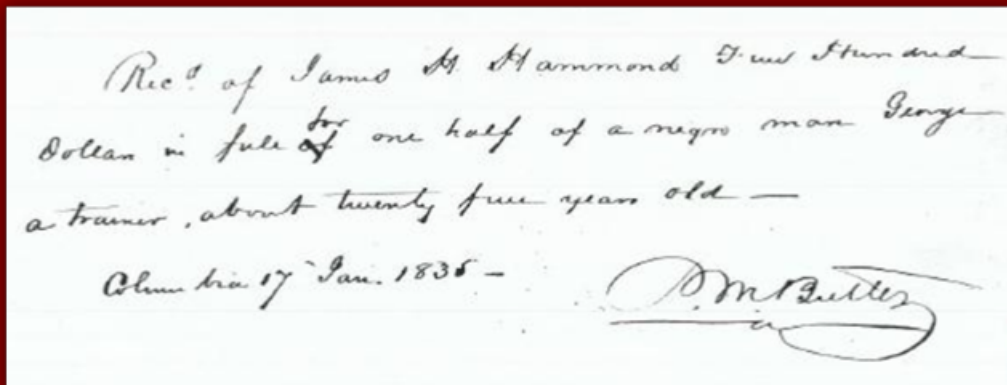 Recd of James H. Hammond Five Hundred
Dollars in full for one half of a negro man George
a trainer, about twenty five years old —
Columbia 17 Jan. 1835 —
P. M. Butler